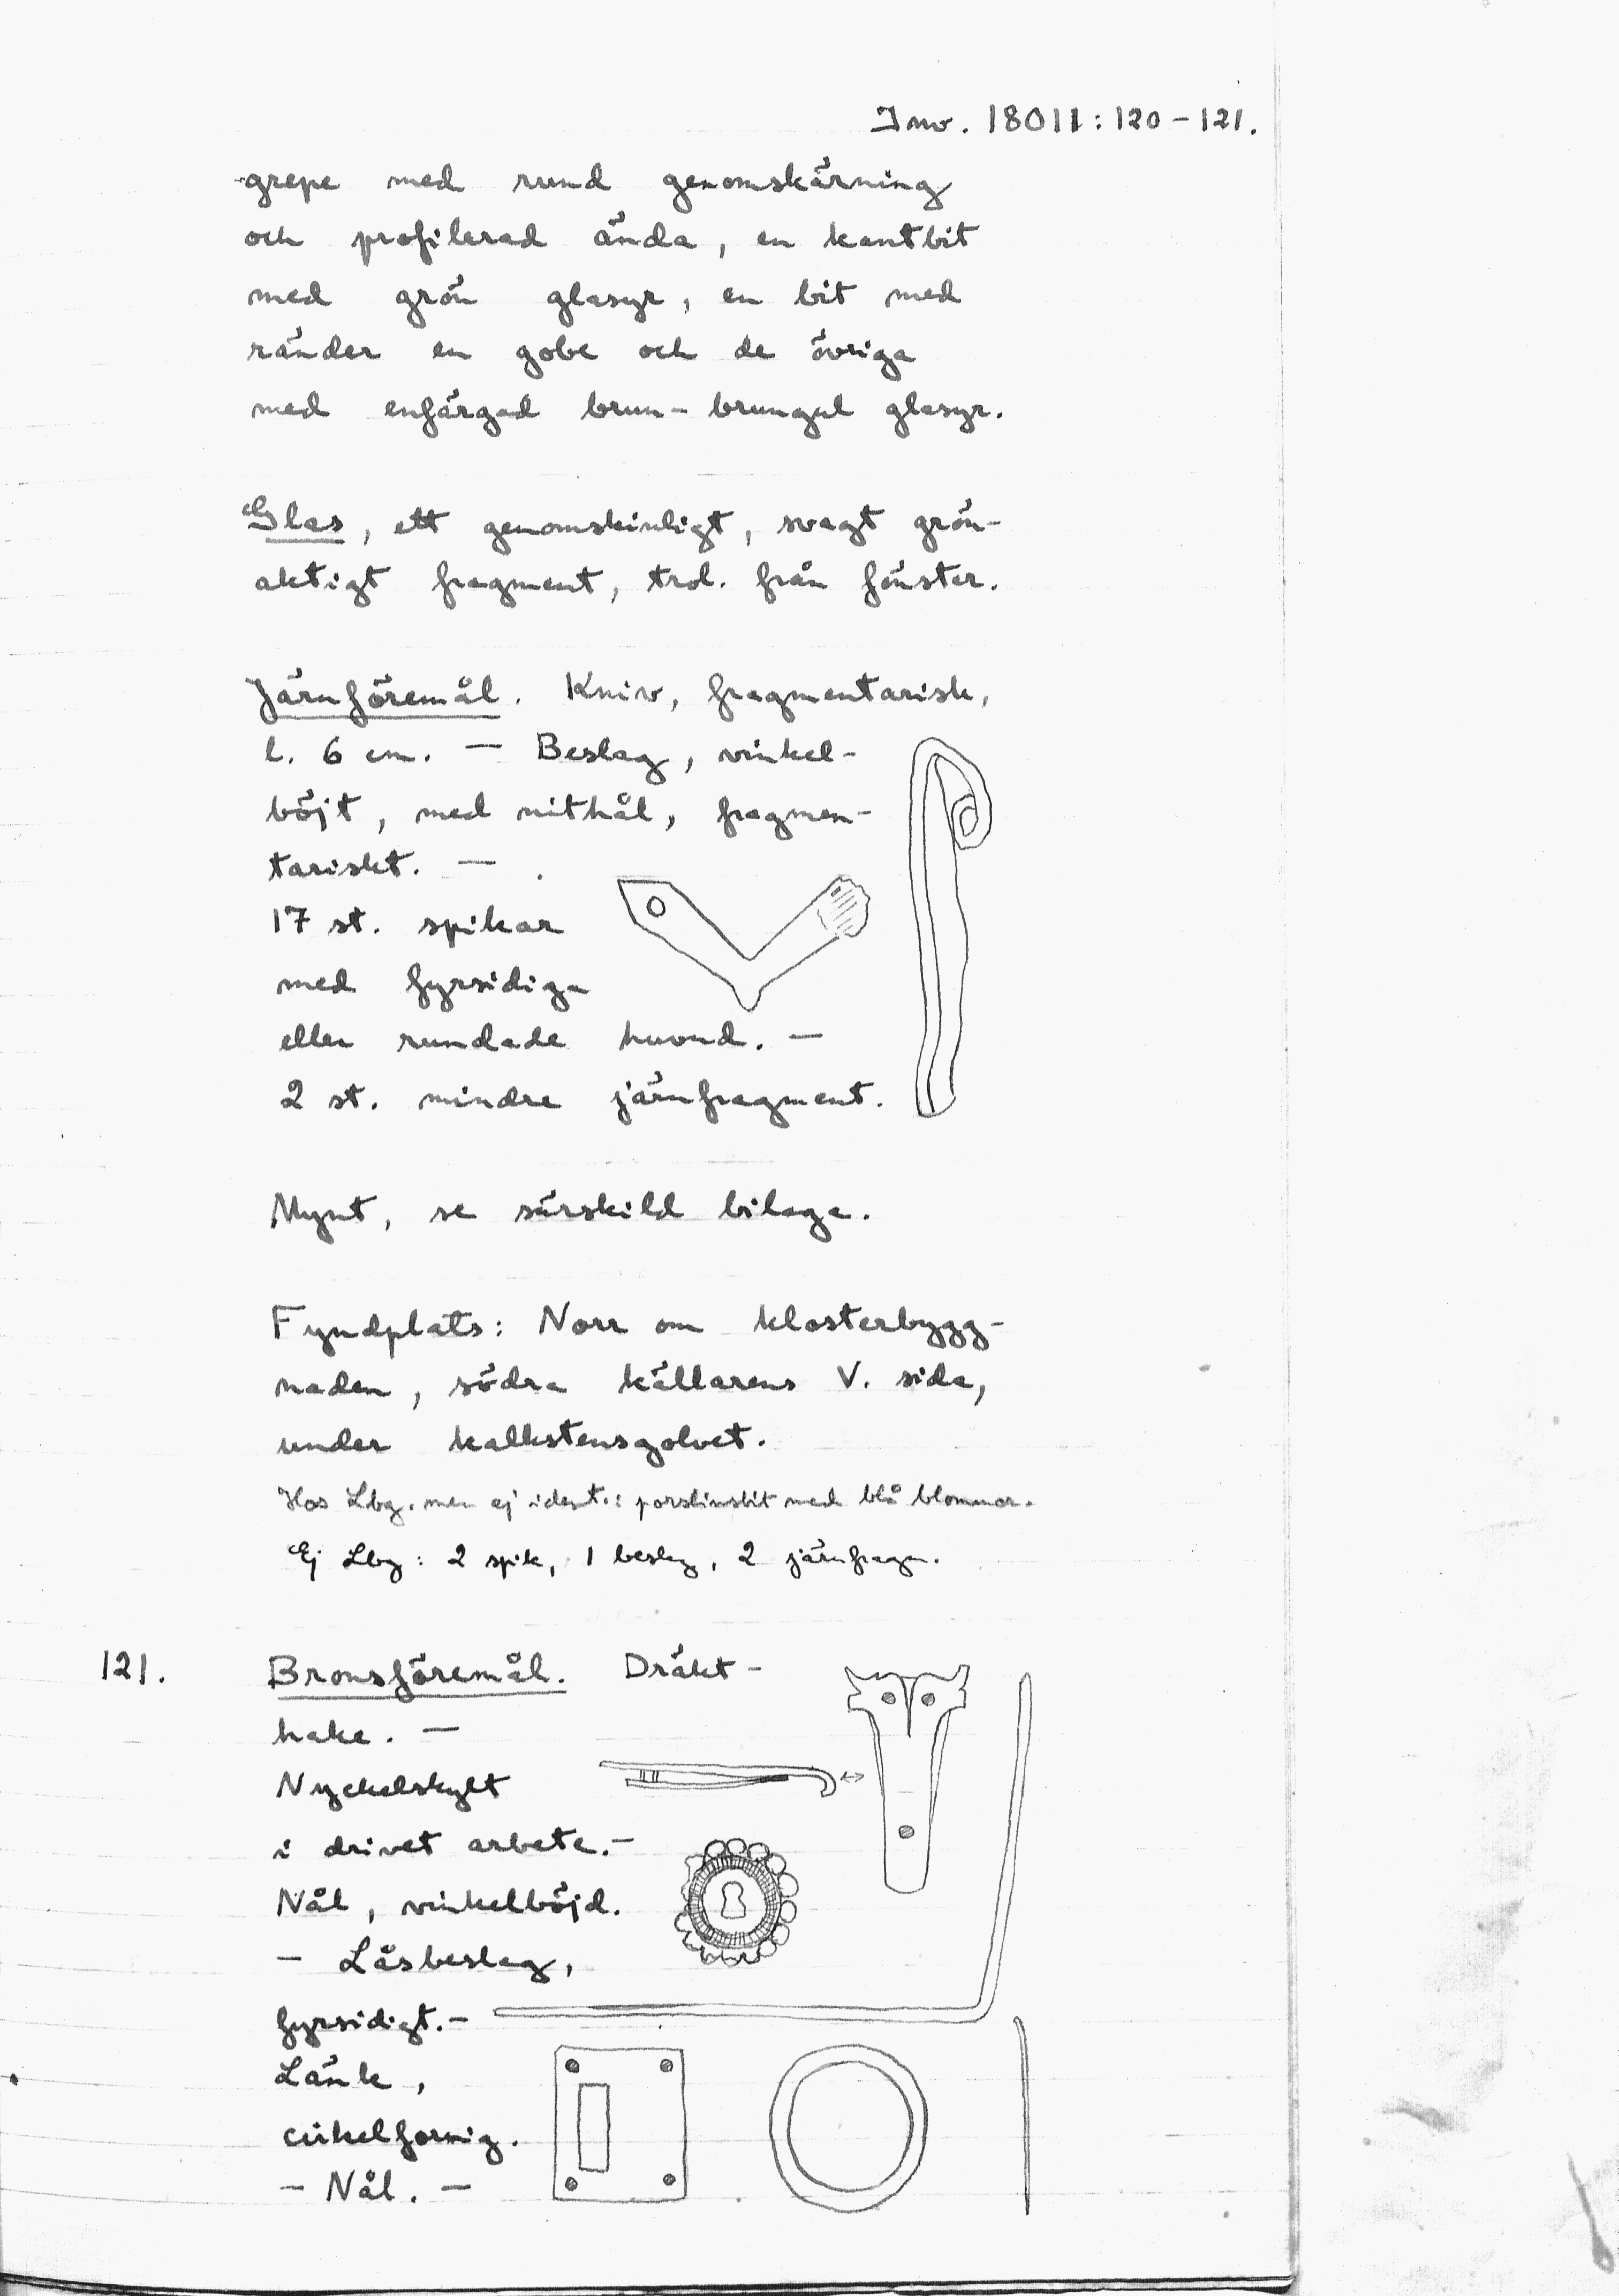 Inv. 18011:120-121.
grepe med rund genomskärning
och profilerad ända, en kantbit
med grön glasyr, en bit med
ränder en gobe och de övriga
med enfärgad brun- brungul glasyr.
Glas, ett genomskinligt, svagt grön-
aktigt fragment, trol. från fönster.
Järnföremål. Kniv, fragmentarisk,
l. 6 cm. — Beslag, vinkel-
böjt, med nithål, fragmen-
tariskt. —
17 st. spikar
med fyrsidiga
eller rundade huvud. —
2 st. mindre järnfragment.
Mynt, se särskild bilaga.
Fyndplats: Norr om klosterbygg-
naden, södra källarens V. sida,
under kalkstensgolvet.
Hos Lbg. men ej ident.: porslinsbit med blå blommor.
Ej Lbg: 2 spik, 1 beslag, 2 järnfragm.
121. Bronsföremål. Dräkt-
hake. —
Nyckelskylt
i drivet arbete.-
Nål, vinkelböjd.
- Låsbeslag,
fyrsidigt.-
Länk,
cirkelformig.
- Nål. -